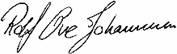 Rolf Ove Johannessen